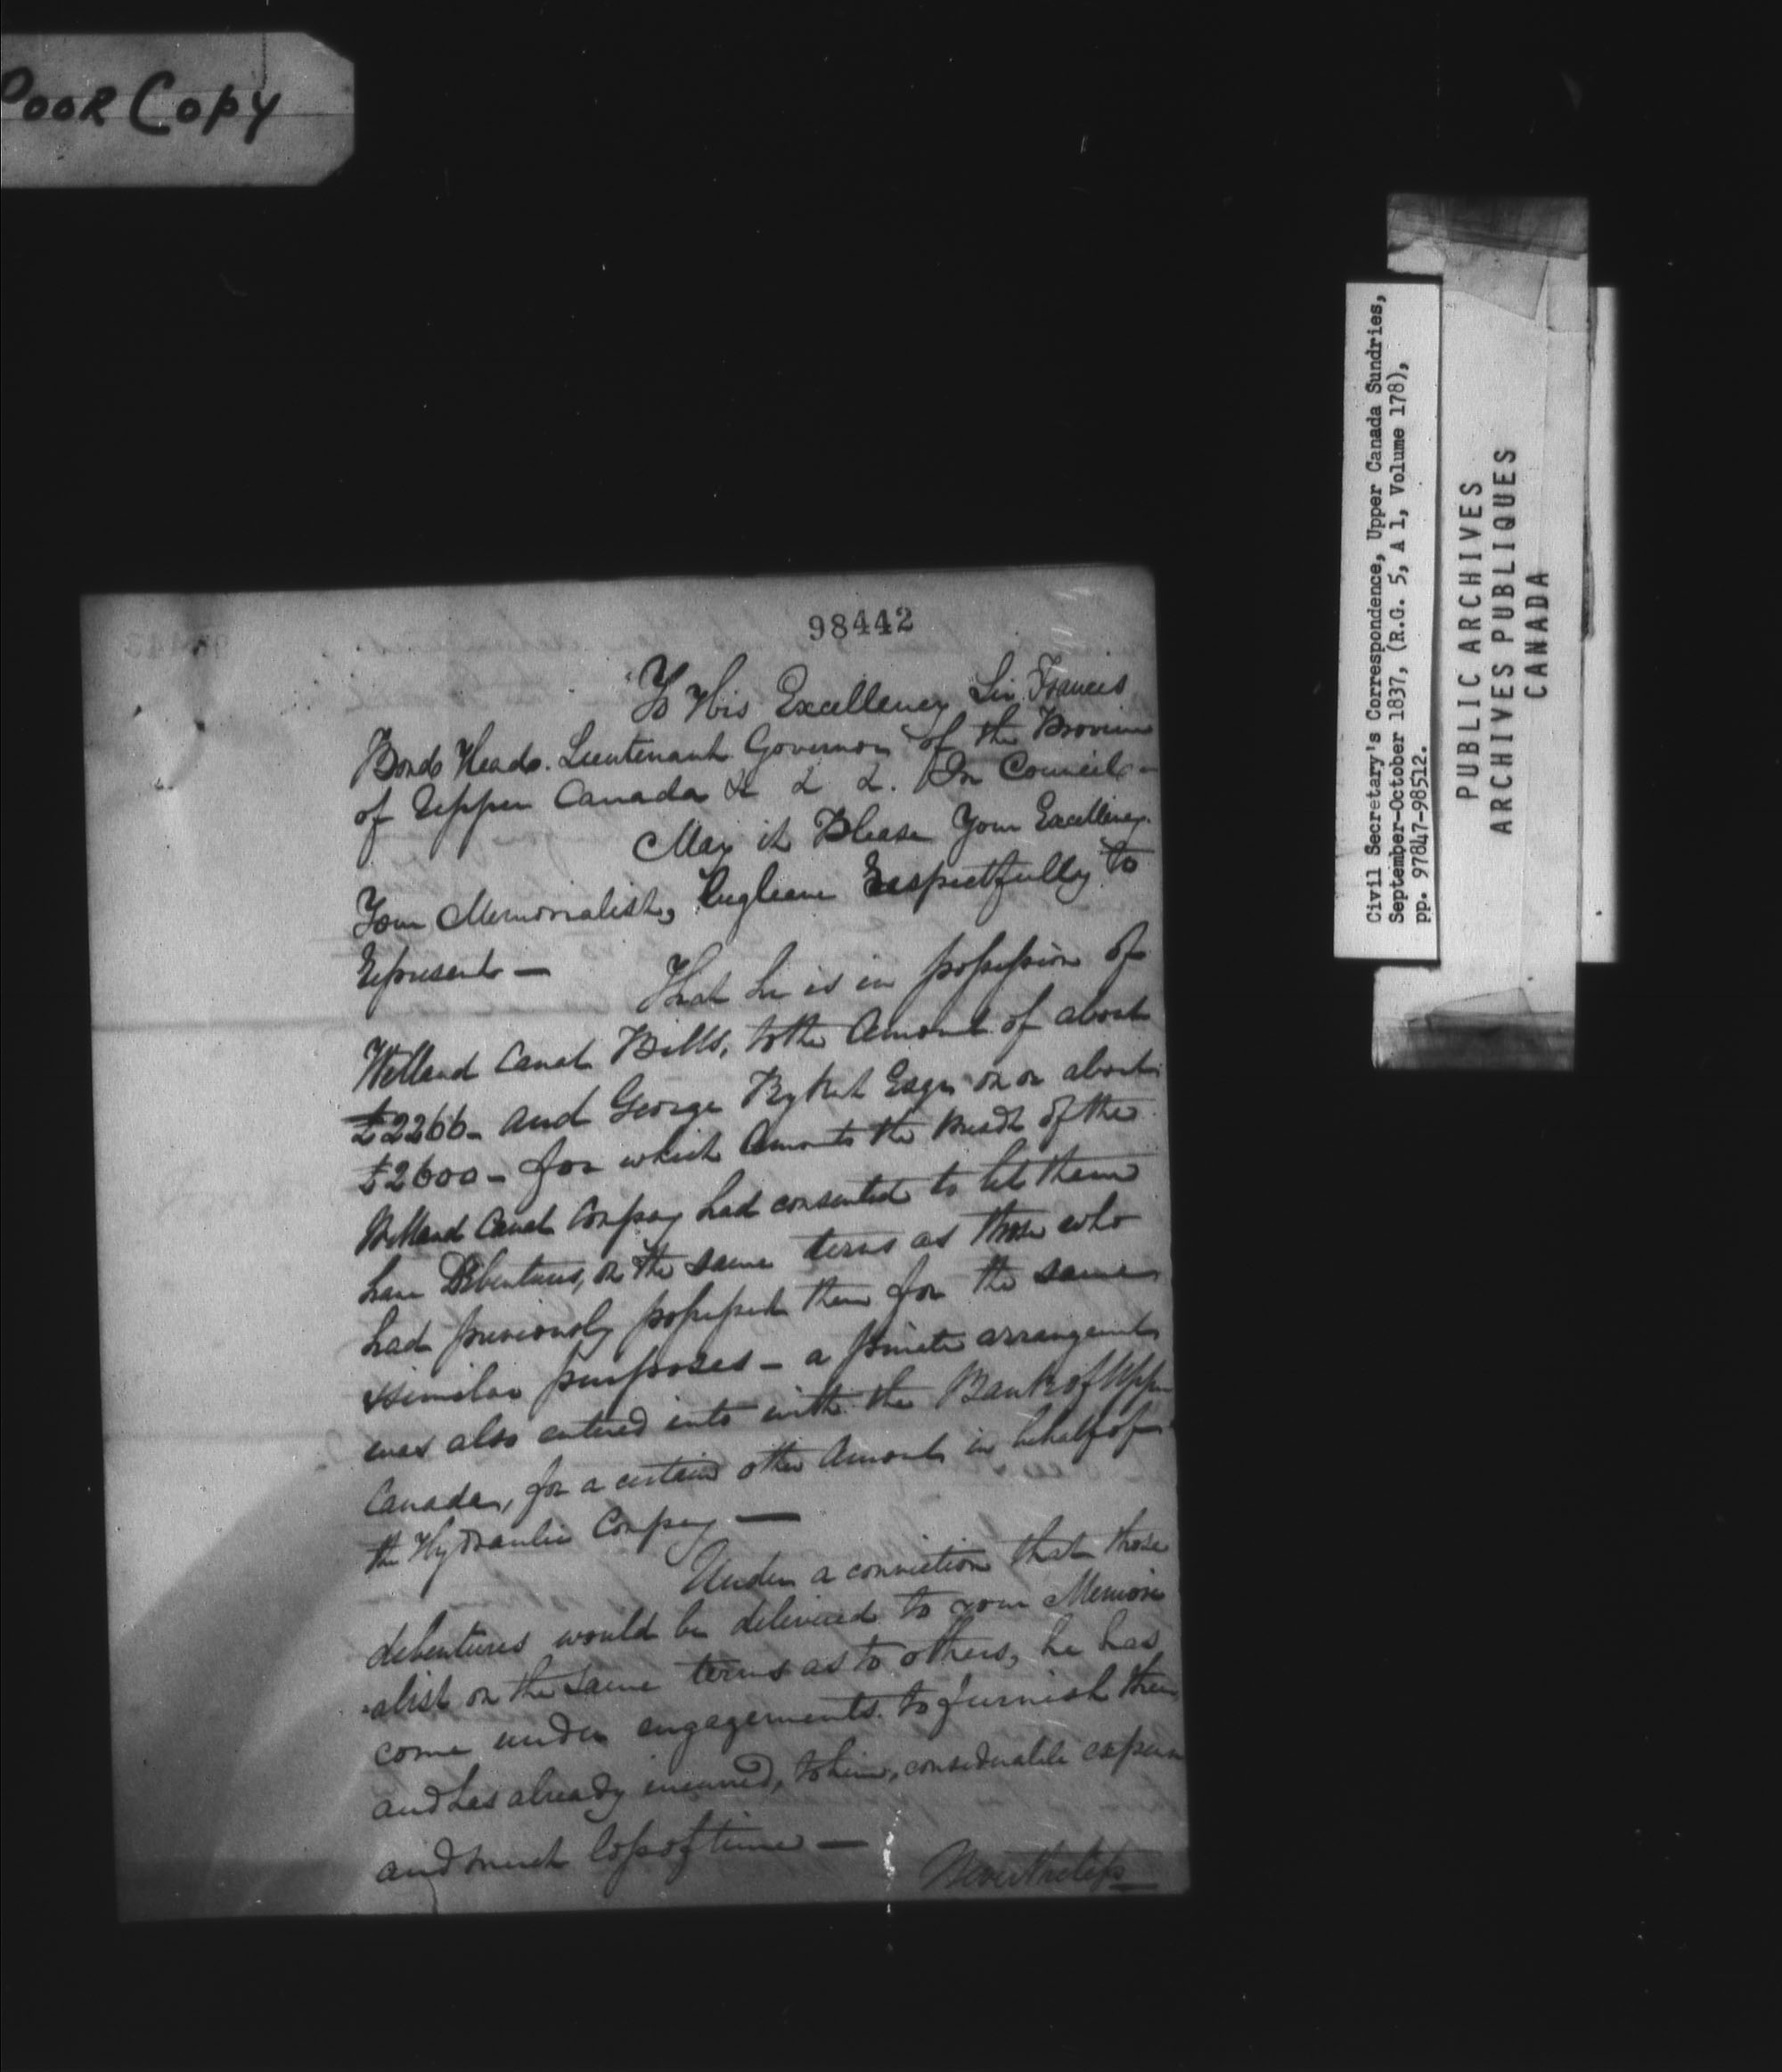 Poor Copy
98442
To His Excellency Sir Francis
Bond Head. Lieutenant Governor of the Province
of Upper Canada & & &. In Council -
May it Please Your Excellency.
Your Memorialist, begleave Respectfully to
Represent —
That he is in possession of
Welland Canal Bills, to the Amount of about
£2266 - and George Rykert Esqr on or about
£2600 - for which Amounts the Presdt of the
Welland Canal Compay had consented to let them
have Debentures, on the same terms as those who
had previously possessed them for the same
similar purposes - a private arrangement
was also entered into with the Bank of Upper
Canada, for a certain other Amount in behalf of
the Hydraulic Compay —
Under a conviction that those
debentures would be delivered to your Memori
-alist on the same terms as to others, he has
come under engagements to furnish them
and has already incurred, to him, considerable expense
and much loss of time —
Nevertheless
Civil Secretary's Correspondence, Upper Canada Sundries,
September-October 1837, (R.G. 5, A 1, Volume 178),
pp. 97847-98512.
PUBLIC ARCHIVES
ARCHIVES PUBLIQUES
CANADA